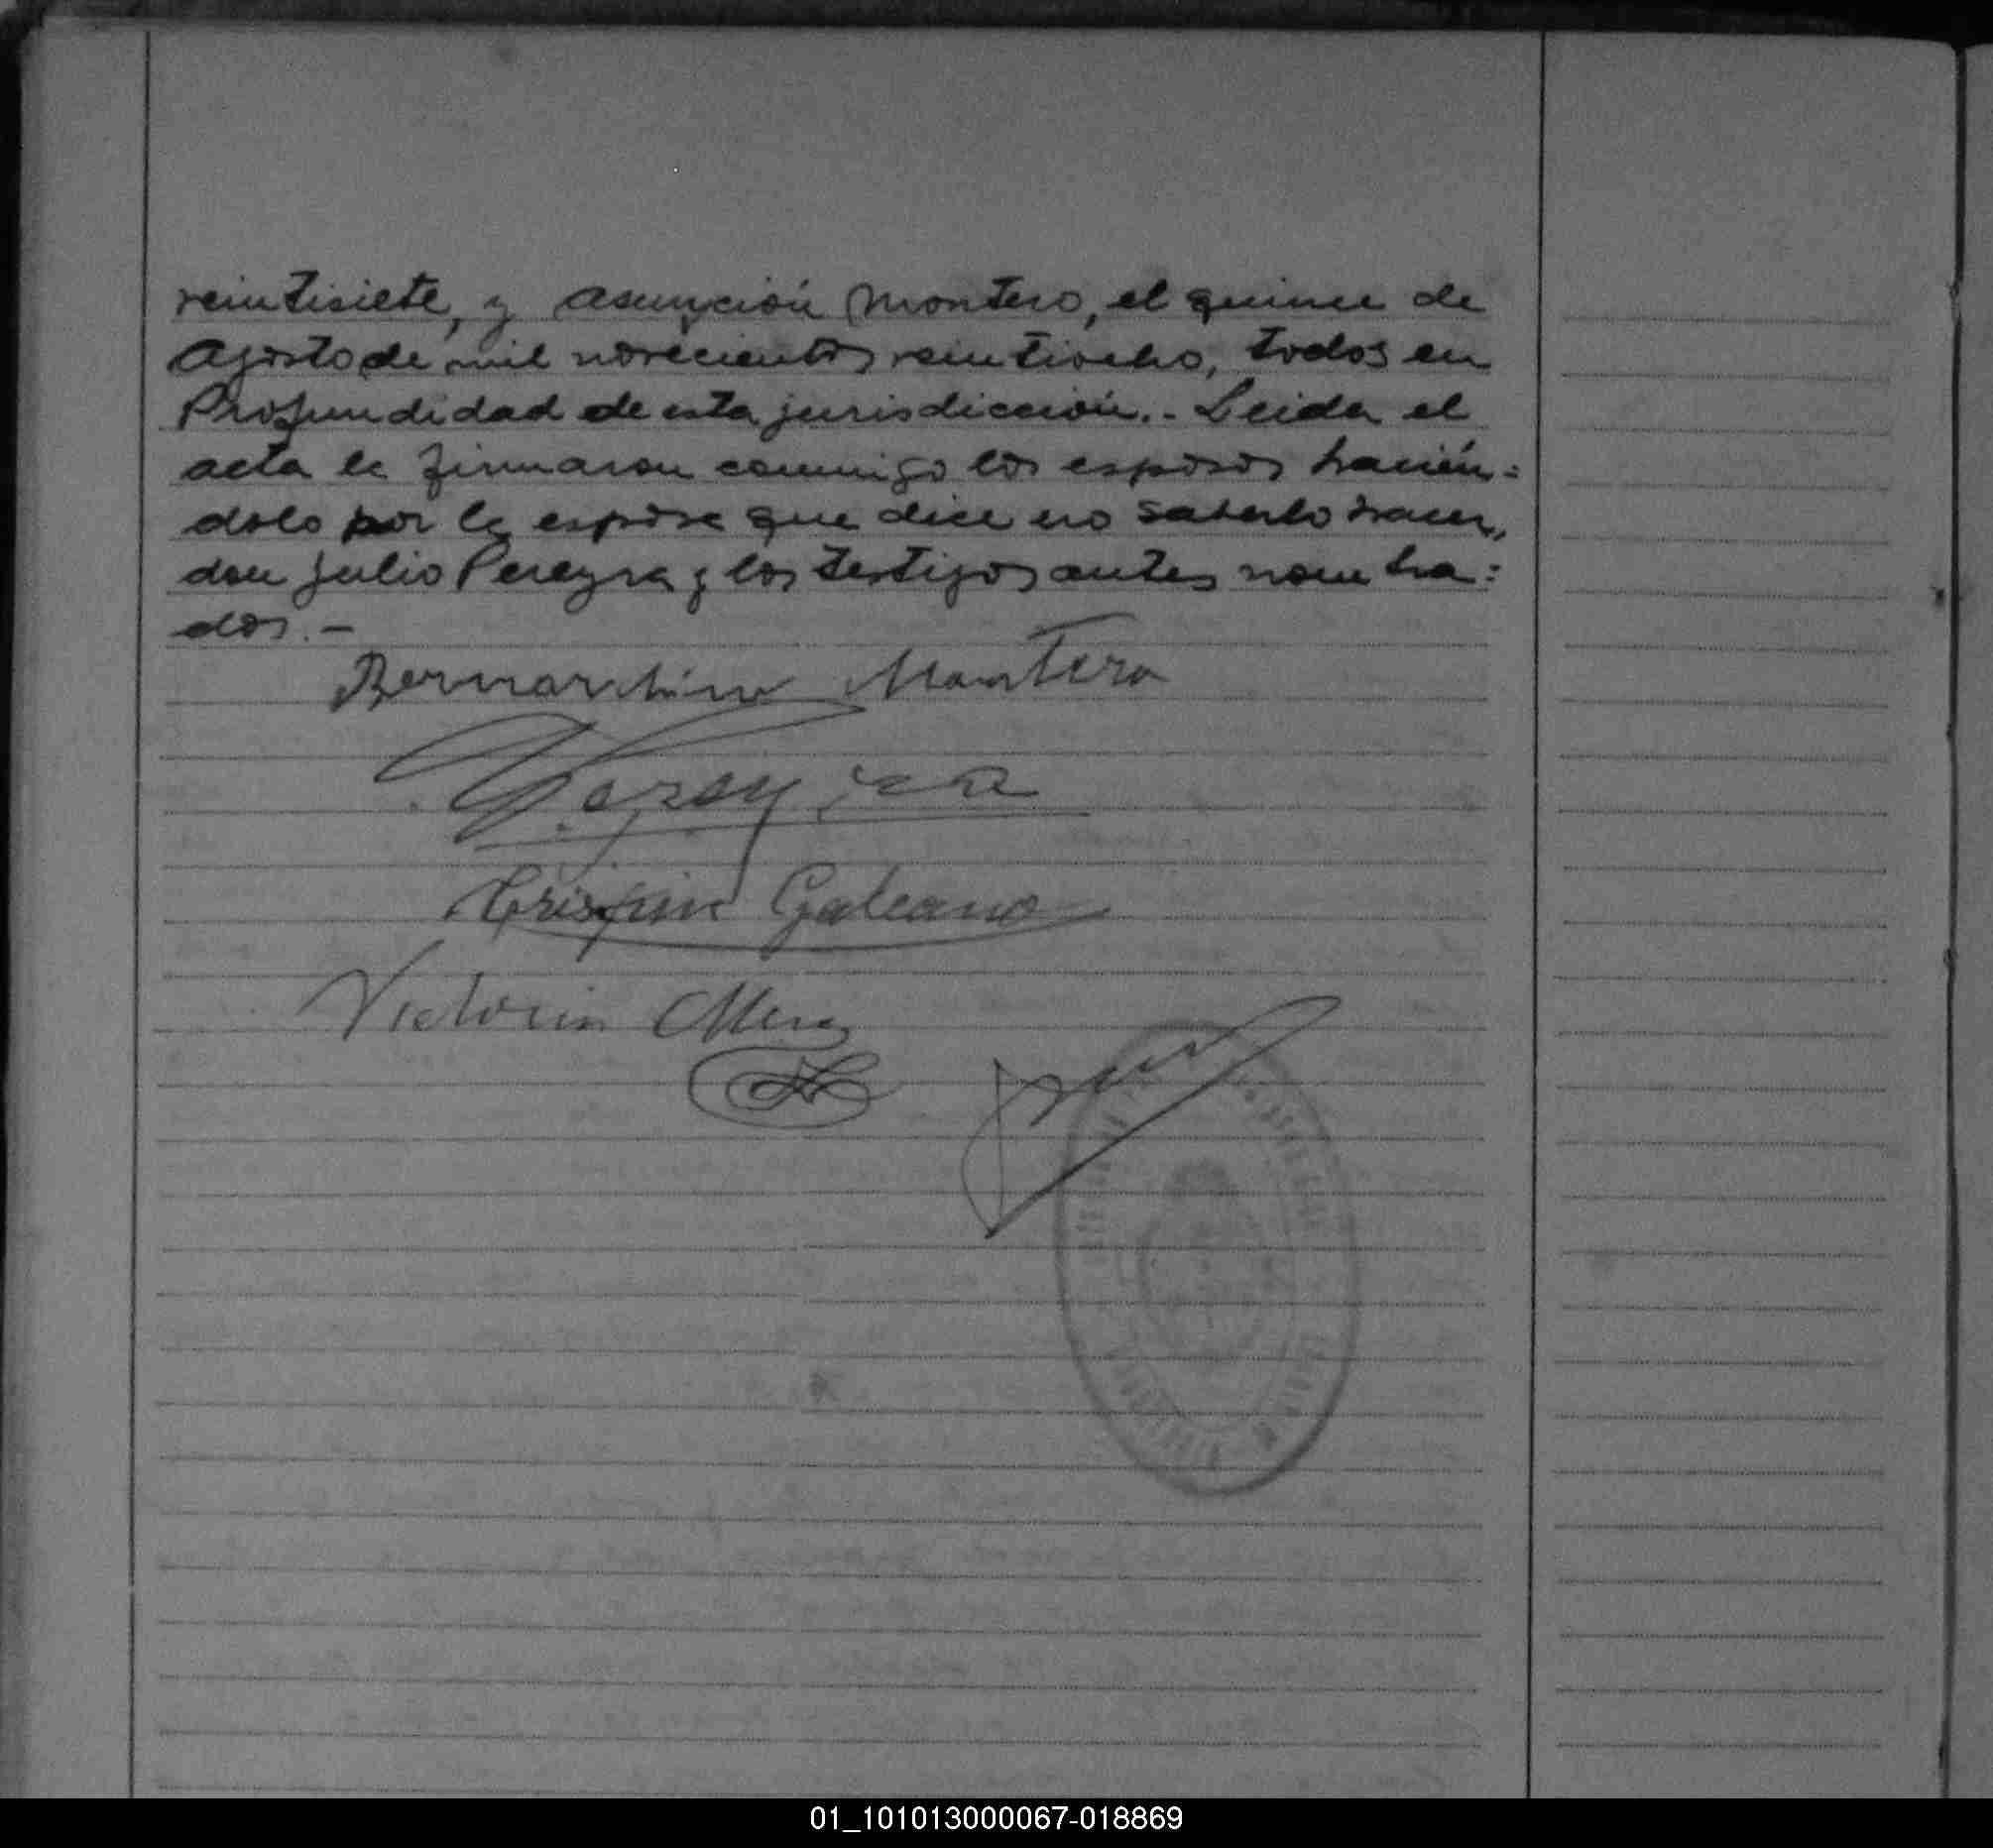 veintisiete, y Asunción Montero, el quince de
Agosto de mil novecientos veintiocho, todos en
Profundidad de esta jurisdicción.- Leida el
acta la firmaron conmigo los esposos hacién=
dolo por la esposa que dice no saberlo hacer,
don Julio Pereyra y los testigos antes nombra=
dos.-
Bernardino Montero
Pereyra
Crispin Galeano
Victorin
01_101013000067-018869